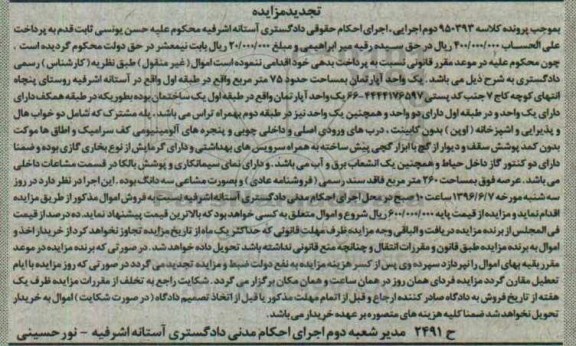 تجدیدمزایده
بموجب پرونده کلاسه ۹۵۰۳۹۳ دوم اجرایی، اجرای احکام حقوقی دادگستری آستانه اشرفیه محکوم علیه حسن یونسی ثابت قدم به پرداخت
علی الحساب ۴۰۰/۰۰۰/۰۰۰ ریال در حق سیده رقیه میر ابراهیمی و مبلغ ۲۰/۰۰۰/۰۰۰ ریال بابت نیمعشر در حق دولت محکوم گردیده است.
چون محکوم علیه در موعد مقرر قانونی نسبت به پرداخت بدهی خود اقدامی ننموده است اموال (غیر منقول) طبق نظریه (کارشناس) رسمی
دادگستری به شرح ذیل می باشد. یک واحد آپارتمان بمساحت حدود ۷۵ متر مربع واقع در طبقه اول واقع در آستانه اشرفیه روستای پنچاه
انتهای کوچه کاج ۷ جنب کد پستی ۴۴۴۴۱۷۶۵۹۷-۶۶ یک واحد آپارتمان واقع در طبقه اول یک ساختمان بوده بطوریکه در طبقه همکف دارای
دارای یک واحد و در طبقه اول دارای دو واحد و همچنین یک واحد نیز در طبقه دوم بهمراه تراس می باشد، پله مشترک که شامل دو خواب هال
و پذیرایی و اشپزخانه (اوپن) بدون کابینت، درب های ورودی اصلی و داخلی چوبی و پنجره های آلومینیومی کف سرامیک و اطاق ها موکت
بدون کمد پوشش سقف و دیوار از گچ با ابزار گچی پیش ساخته به همراه سرویس های بهداشتی و دارای گرمایش از نوع بخاری گازی بوده و ضمنا
دارای دو کنتور گاز داخل حیاط و همچنین یک انشعاب برق و آب می باشد. و دارای نمای سیمانکاری و پوشش بالکا در قسمت مشاعات داخلی
می باشد. عرصه فوق بمساحت ۲۶۰ متر مربع فاقد سند رسمی (فروشنامه عادی) و بصورت مشاعی سه دانگ بوده. این اجرا در نظر دارد در روز
سه شنبه مورخه ۱۳۹۶/۶/۷ ساعت ۱۰ صبح در محل اجرای احکام مدنی دادگستری آستانه اشرفیه نسبت به فروش اموال مذکور از طریق مزایده
اقدام نماید و مزایده از قیمت پایه ۶۰۰/۰۰۰/۰۰۰ ریال شروع و اموال متعلق به کسی خواهد بود که بالاترین قیمت پیشنهاد نماید. ده درصد از قیمت
فی المجلس از برنده مزایده دریافت والباقی وجه مزایده ظرف مهلت قانونی که حداکثر یک ماه از تاریخ مزایده تجاوز نخواهد کرد از خریدار اخذ و
اموال به برنده مزایده طبق قانون و مقررات انتقال و چنانچه منع قانونی نداشته باشد تحویل داده خواهد شد. در صورتی که برنده مزایده در موعد
مقرر بقیه بهای اموال را نپردازد سپرده وی پس از کسر هزینه مزایده به نفع دولت ضبط و مزایده تجدید می گردد در صورتی که روز مزایده با ایام
تعطیل مقارن گردد مزایده فردای همان روز در همان ساعت و همان مکان برگزار می گردد. شکایت راجع به تخلف از مقررات مزایده ظرف یک
هفته از تاریخ فروش به دادگاه صادر کننده ارجاع و قبل از اتمام مهلت مذکور یا قبل از اتخاذ تصمیم دادگاه (در صورت شکایت) اموال به خریدار
تحویل نخواهد شد ضمنا کلیه هزینه های متصوره بر عهده خریدار می باشد.
ح ۲۴۹۱ مدیر شعبه دوم اجرای احکام مدنی دادگستری آستانه اشرفیه - نور حسینی